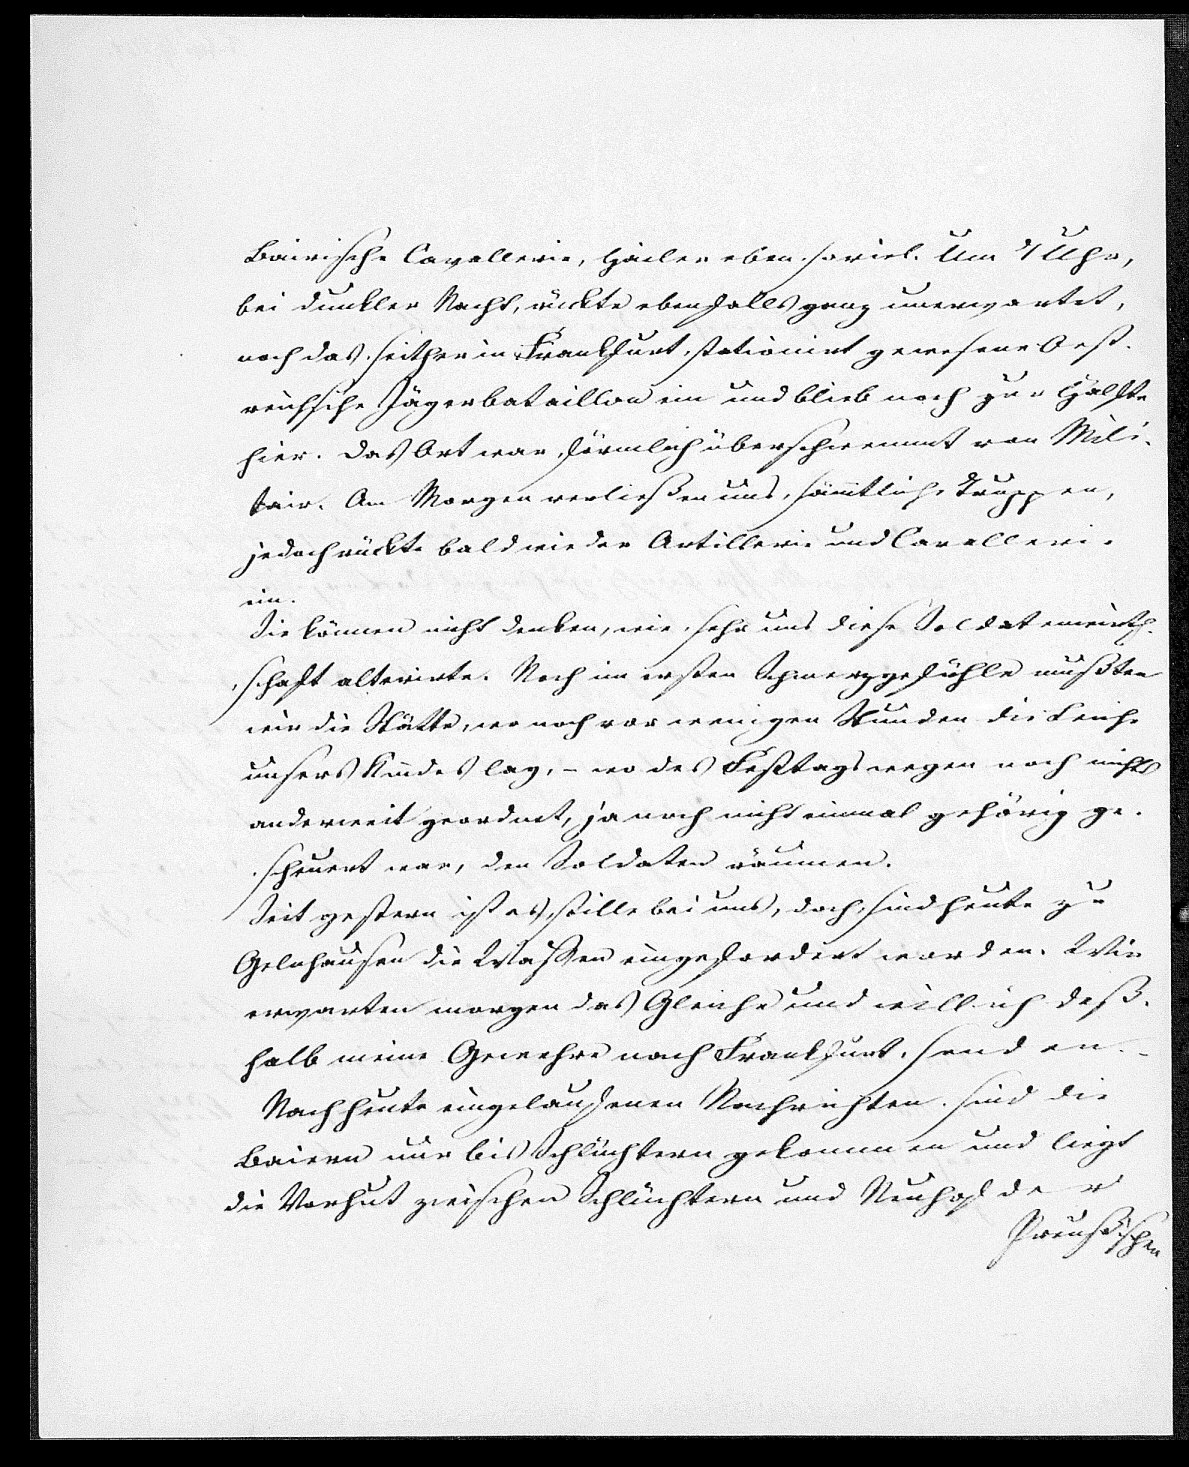 Bairische Cavallerie, Hailer eben soviel. Um 4 Uhr,
bei dunkler Nacht, rückte ebenfalls ganz unerwartet,
noch das seither in Frankfurt stationirt gewesene Oest-
reichsche Jägerbataillon ein und blieb noch zur Hälfte
hier. Das Ort war förmlich überschwemmt von Mili-
tair. Am Morgen verließen uns sämtliche Truppen,
jedoch rückte bald wieder Artillerie und Cavallerie
ein.
Sie können nicht denken, wie sehr uns diese Soldatenwirth-
schaft alterirte. Noch im ersten Schmerzgefühle mußten
wir die Stätte, wo noch vor wenigen Stunden die Leiche
unsers Kindes lag, – wo des Festtags wegen noch nichts
anderweit geordnet, ja noch nicht einmal gehörig ge-
scheuert war, den Soldaten räumen.
Seit gestern ist es stille bei uns, doch sind heute zu
Gelnhausen die Waffen eingefordert worden. Wir
erwarten morgen das Gleiche und will ich deß-
halb meine Gewehre nach Frankfurt senden. –
Nach heute eingelaufenen Nachrichten sind die
Baiern nur bis Schlüchtern gekommen und liegt
die Vorhut zwischen Schlüchtern und Neuhof der
Preußischen